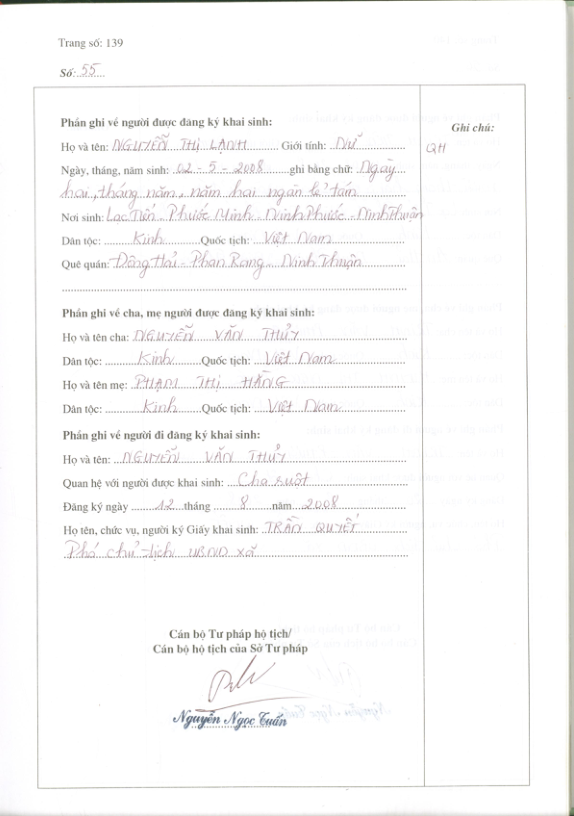 Trang số: 139
Số: 55
Phần ghi về người được đăng ký khai sinh:
Ghi chú:
Họ và tên: NGUYỄN THỊ LẠNH Giới tính: Nữ
QH
Ngày, tháng, năm sinh: 02 - 5 - 2008 ghi bằng chữ: Ngày
hai, tháng năm, năm hai ngàn lẻ tám
Nơi sinh: Lạc Tiến - Phước Minh - Ninh Phước - Ninh Thuận
Dân tộc: Kinh Quốc tịch: Việt Nam
Quê quán: Đông Hải - Phan Rang - Ninh Thuận
Phần ghi về cha, mẹ người được đăng ký khai sinh:
Họ và tên cha: NGUYỄN VĂN THỦY
Dân tộc: Kinh Quốc tịch: Việt Nam
Họ và tên mẹ: PHẠM THỊ HẰNG
Dân tộc: Kinh Quốc tịch: Việt Nam
Phần ghi về người đi đăng ký khai sinh:
Họ và tên: NGUYỄN VĂN THỦY
Quan hệ với người được khai sinh: Cha ruột
Đăng ký ngày 12 tháng 8 năm 2008
Họ tên, chức vụ, người ký Giấy khai sinh: TRẦN QUYẾT
Phó chủ tịch UBND xã
Cán bộ Tư pháp hộ tịch/
Cán bộ hộ tịch của Sở Tư pháp
Nguyễn Ngọc Tuấn